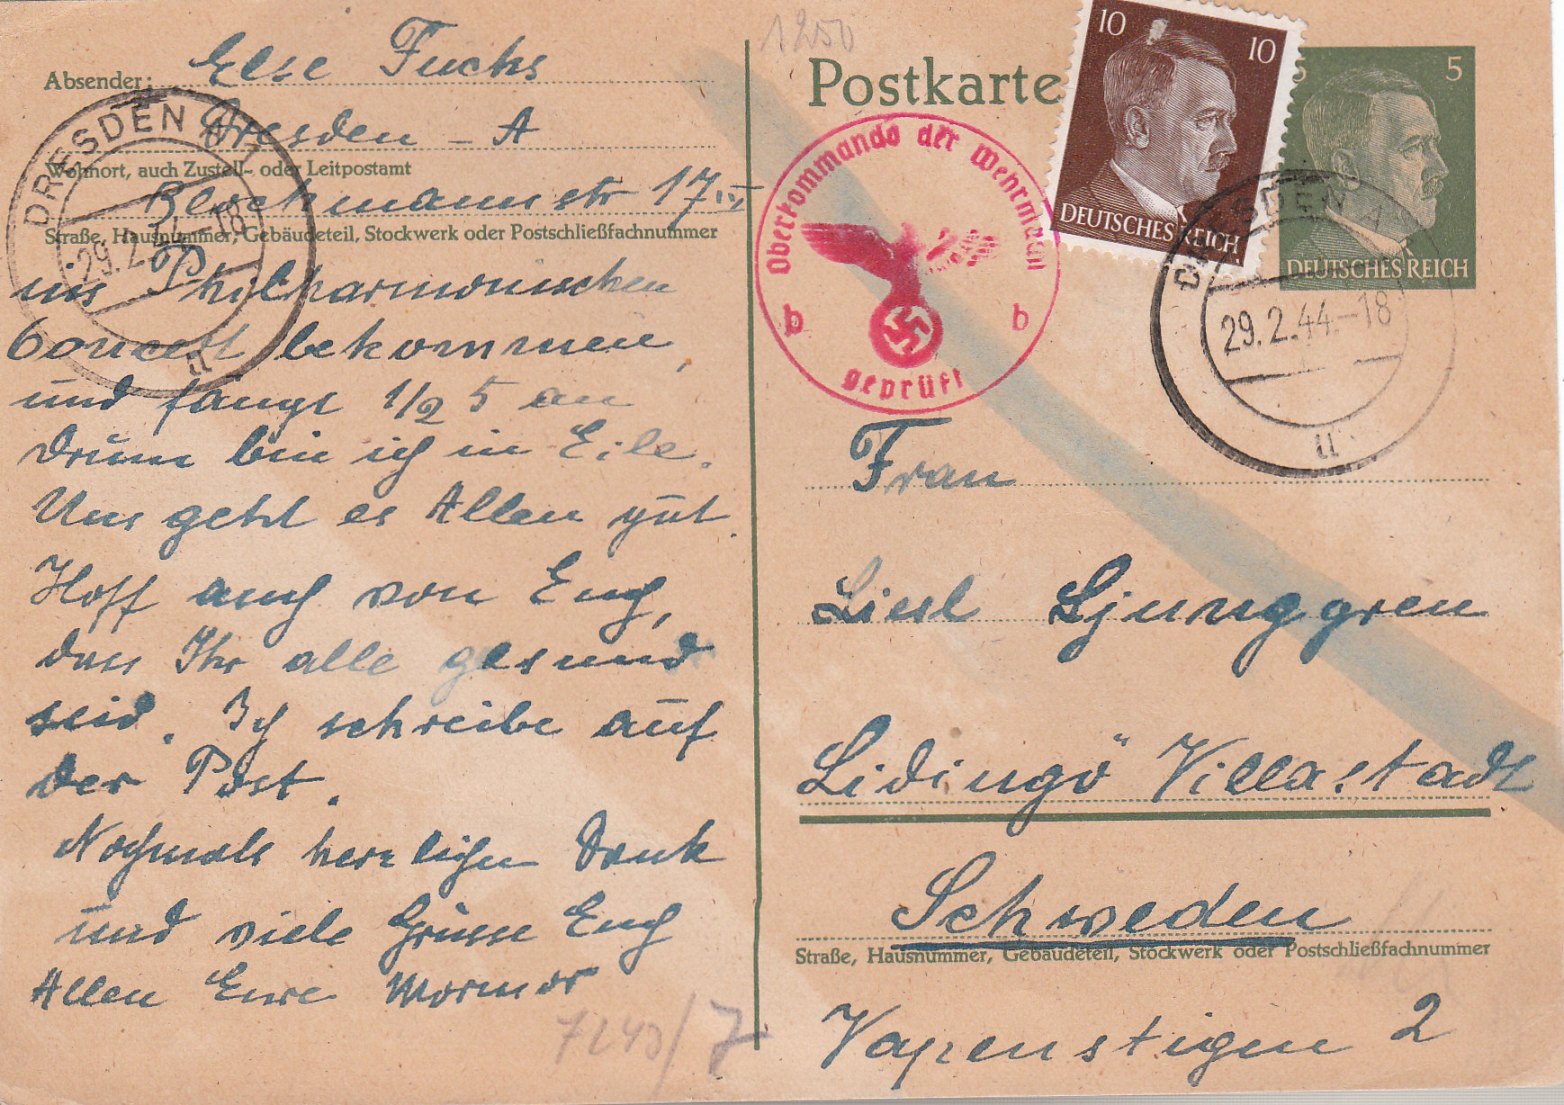 Absender: Else Fuchs
Dresden - A
Wohnort, auch Zustell- oder Leitpostamt
Blochmannstr 17
Straße, Hausnummer, Gebäudeteil, Stockwerk oder Postschließfachnummer
ins Philharmonischen
Concert bekommen,
und fängt 1/2 5 an
drum bin ich in Eile.
Uns geht es Allen gut.
Hoff auch von Euch,
dass Ihr alle gesund
seid. Ich schreibe auf
der Post.
Nochmals herzlichen Dank
und viele Grüsse Euch
Allen Eure
7243/7
DRESDEN A
29.2.44.-18
u
1200
Postkarte
10 10
DEUTSCHES REICH
5 5
DEUTSCHES REICH
Oberkommando der Wehrmacht
b b
geprüft
DRESDEN A
29.2.44.-18
u
Frau
Liesl Ljunggren
Lidingö Villastadt
Schweden
Straße, Hausnummer, Gebäudeteil, Stockwerk oder Postschließfachnummer
Vapenstigen 2